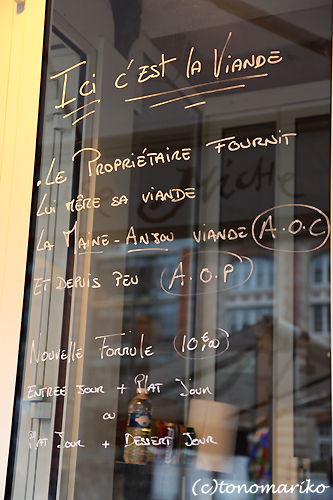 Ici c'est la Viande
. Le Propriétaire fournit
lui même sa viande
la Maine-Anjou viande A.O.C
et depuis peu A.O.P
Nouvelle Formule 10€,00
Entrée jour + Plat jour
ou
Plat jour + Dessert jour
(c)tonomariko